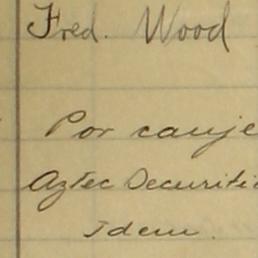 Fred. Wood
Por canje
Aztec Securiti
Idem.